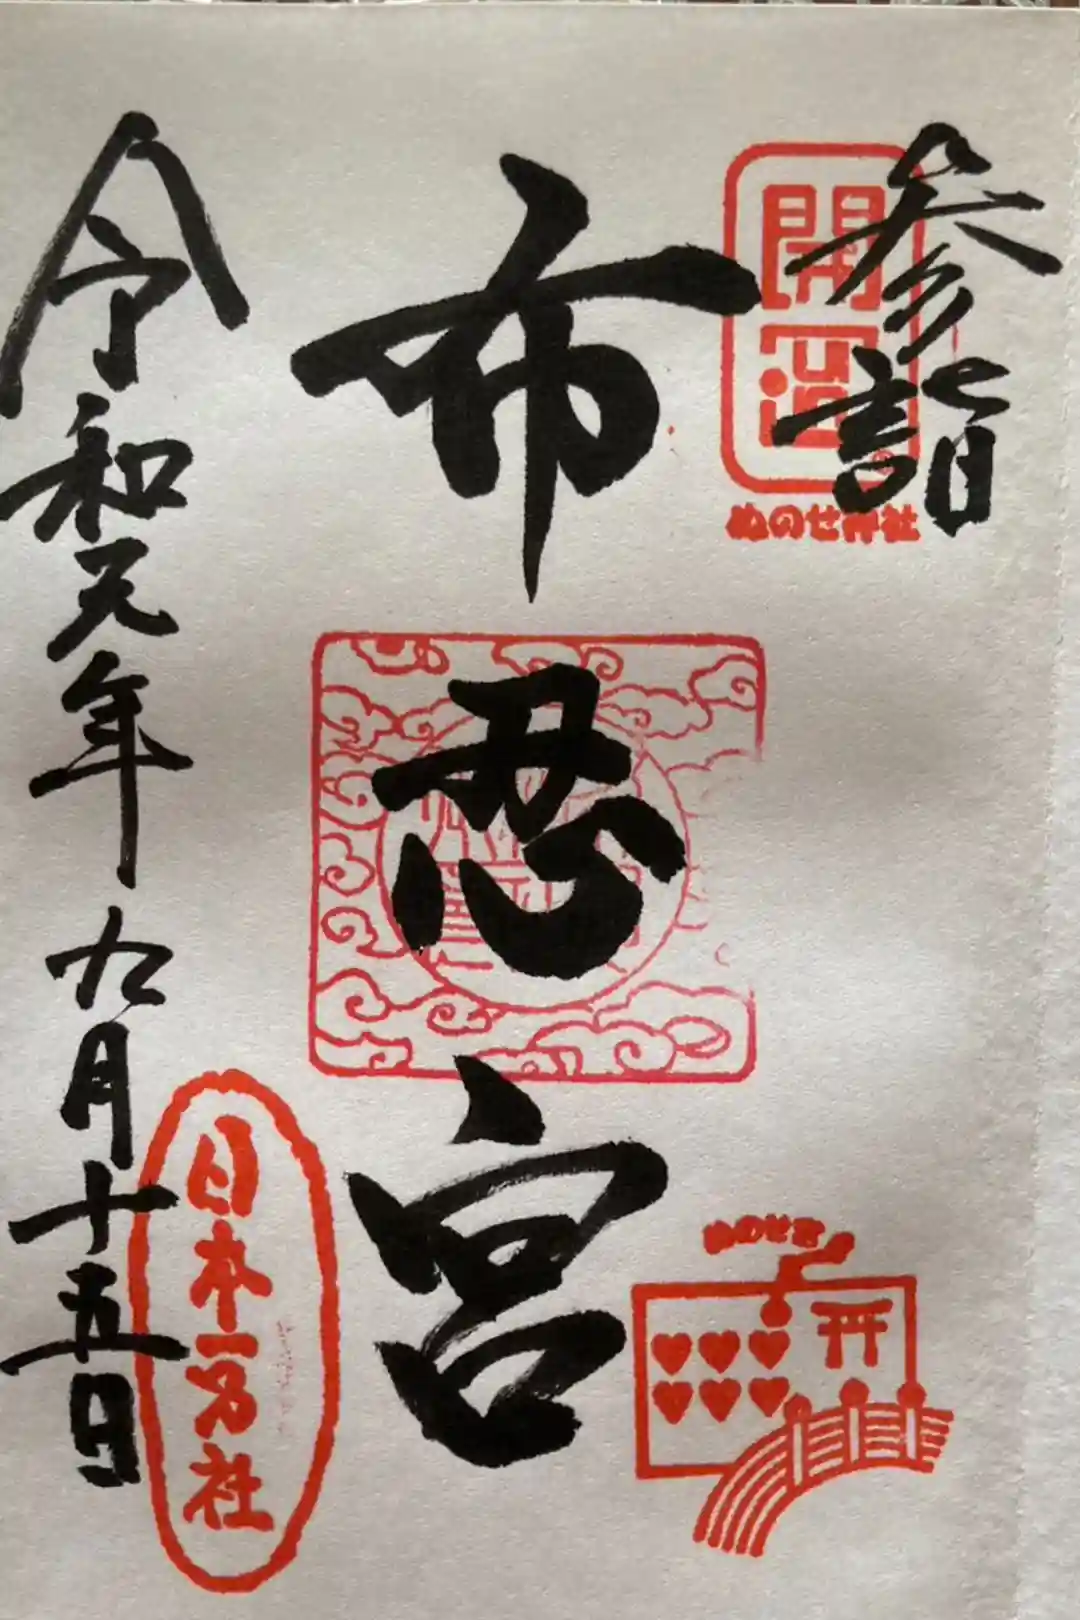 参詣
開運
ぬのせ神社
布忍宮
令和元年九月十五日
日本一万社